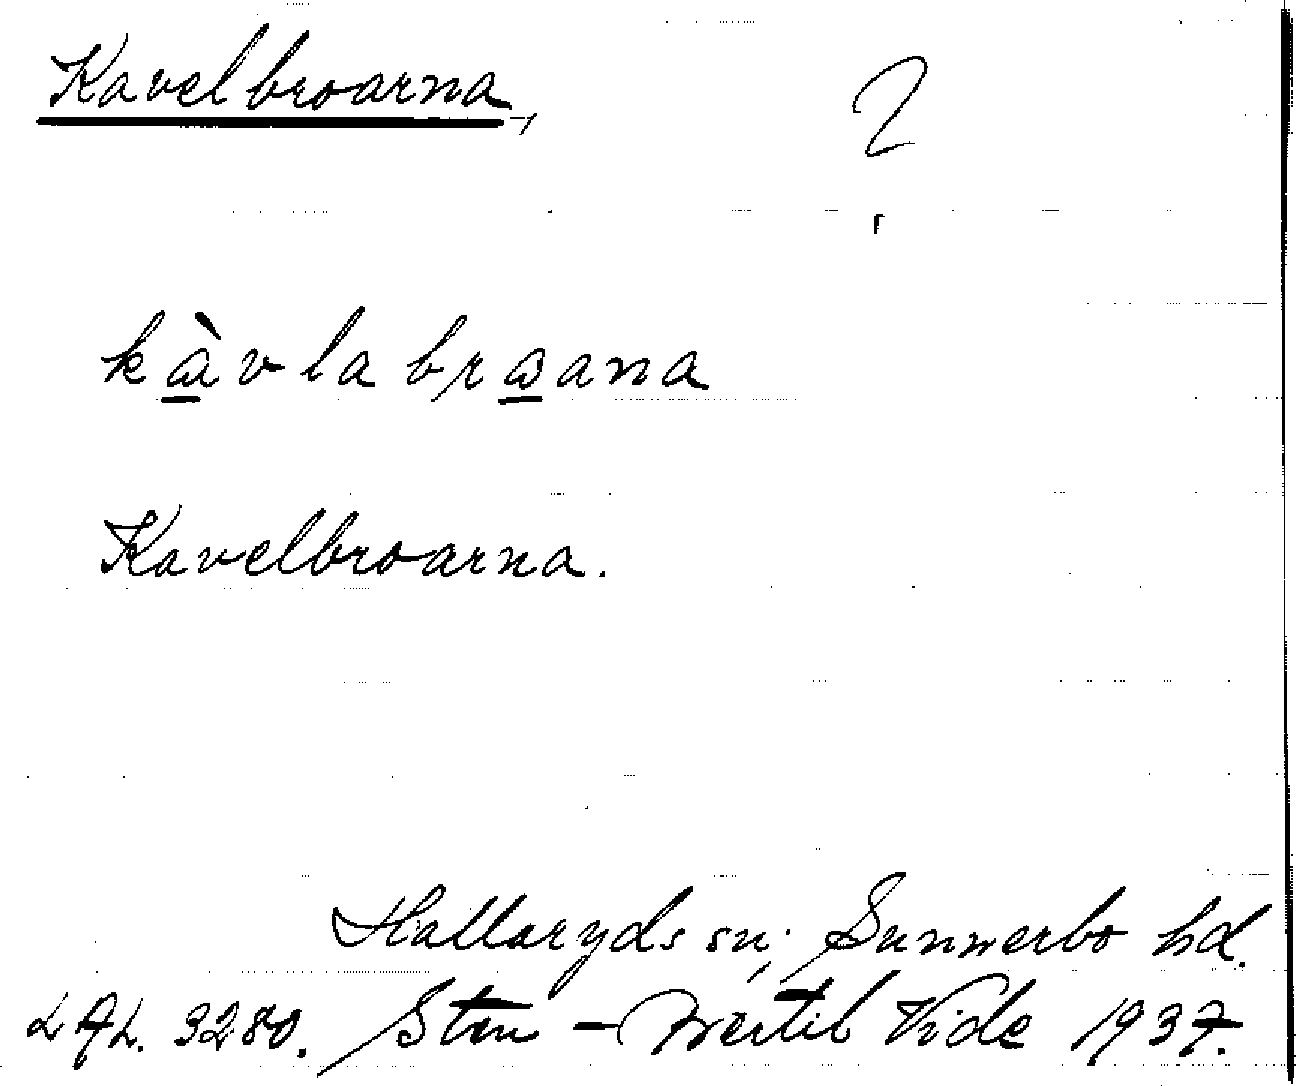 Kavelbroarna, 2
kàvlabroana
Kavelbroarna.
Hallaryds sn; Sunnerbo hd.
LAL. 3280. Sten-Bertil Vide 1937.